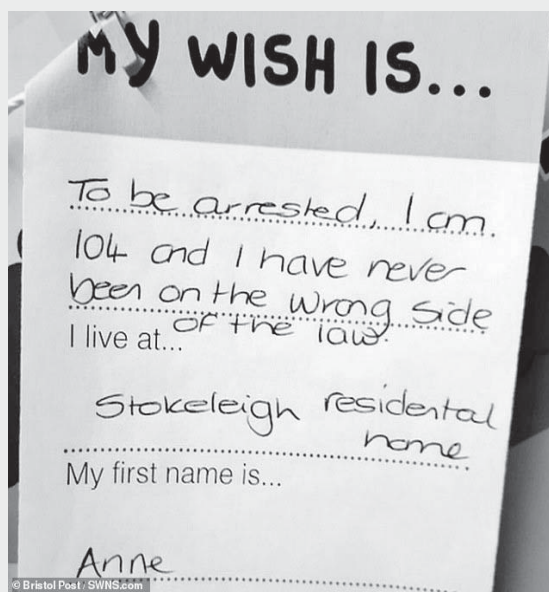 MY WISH IS...
To be arrested, I am.
104 and I have never
been on the wrong side
of the law.
I live at...
Stokeleigh residental
home
My first name is...
Anne
© Bristol Post / SWNS.com